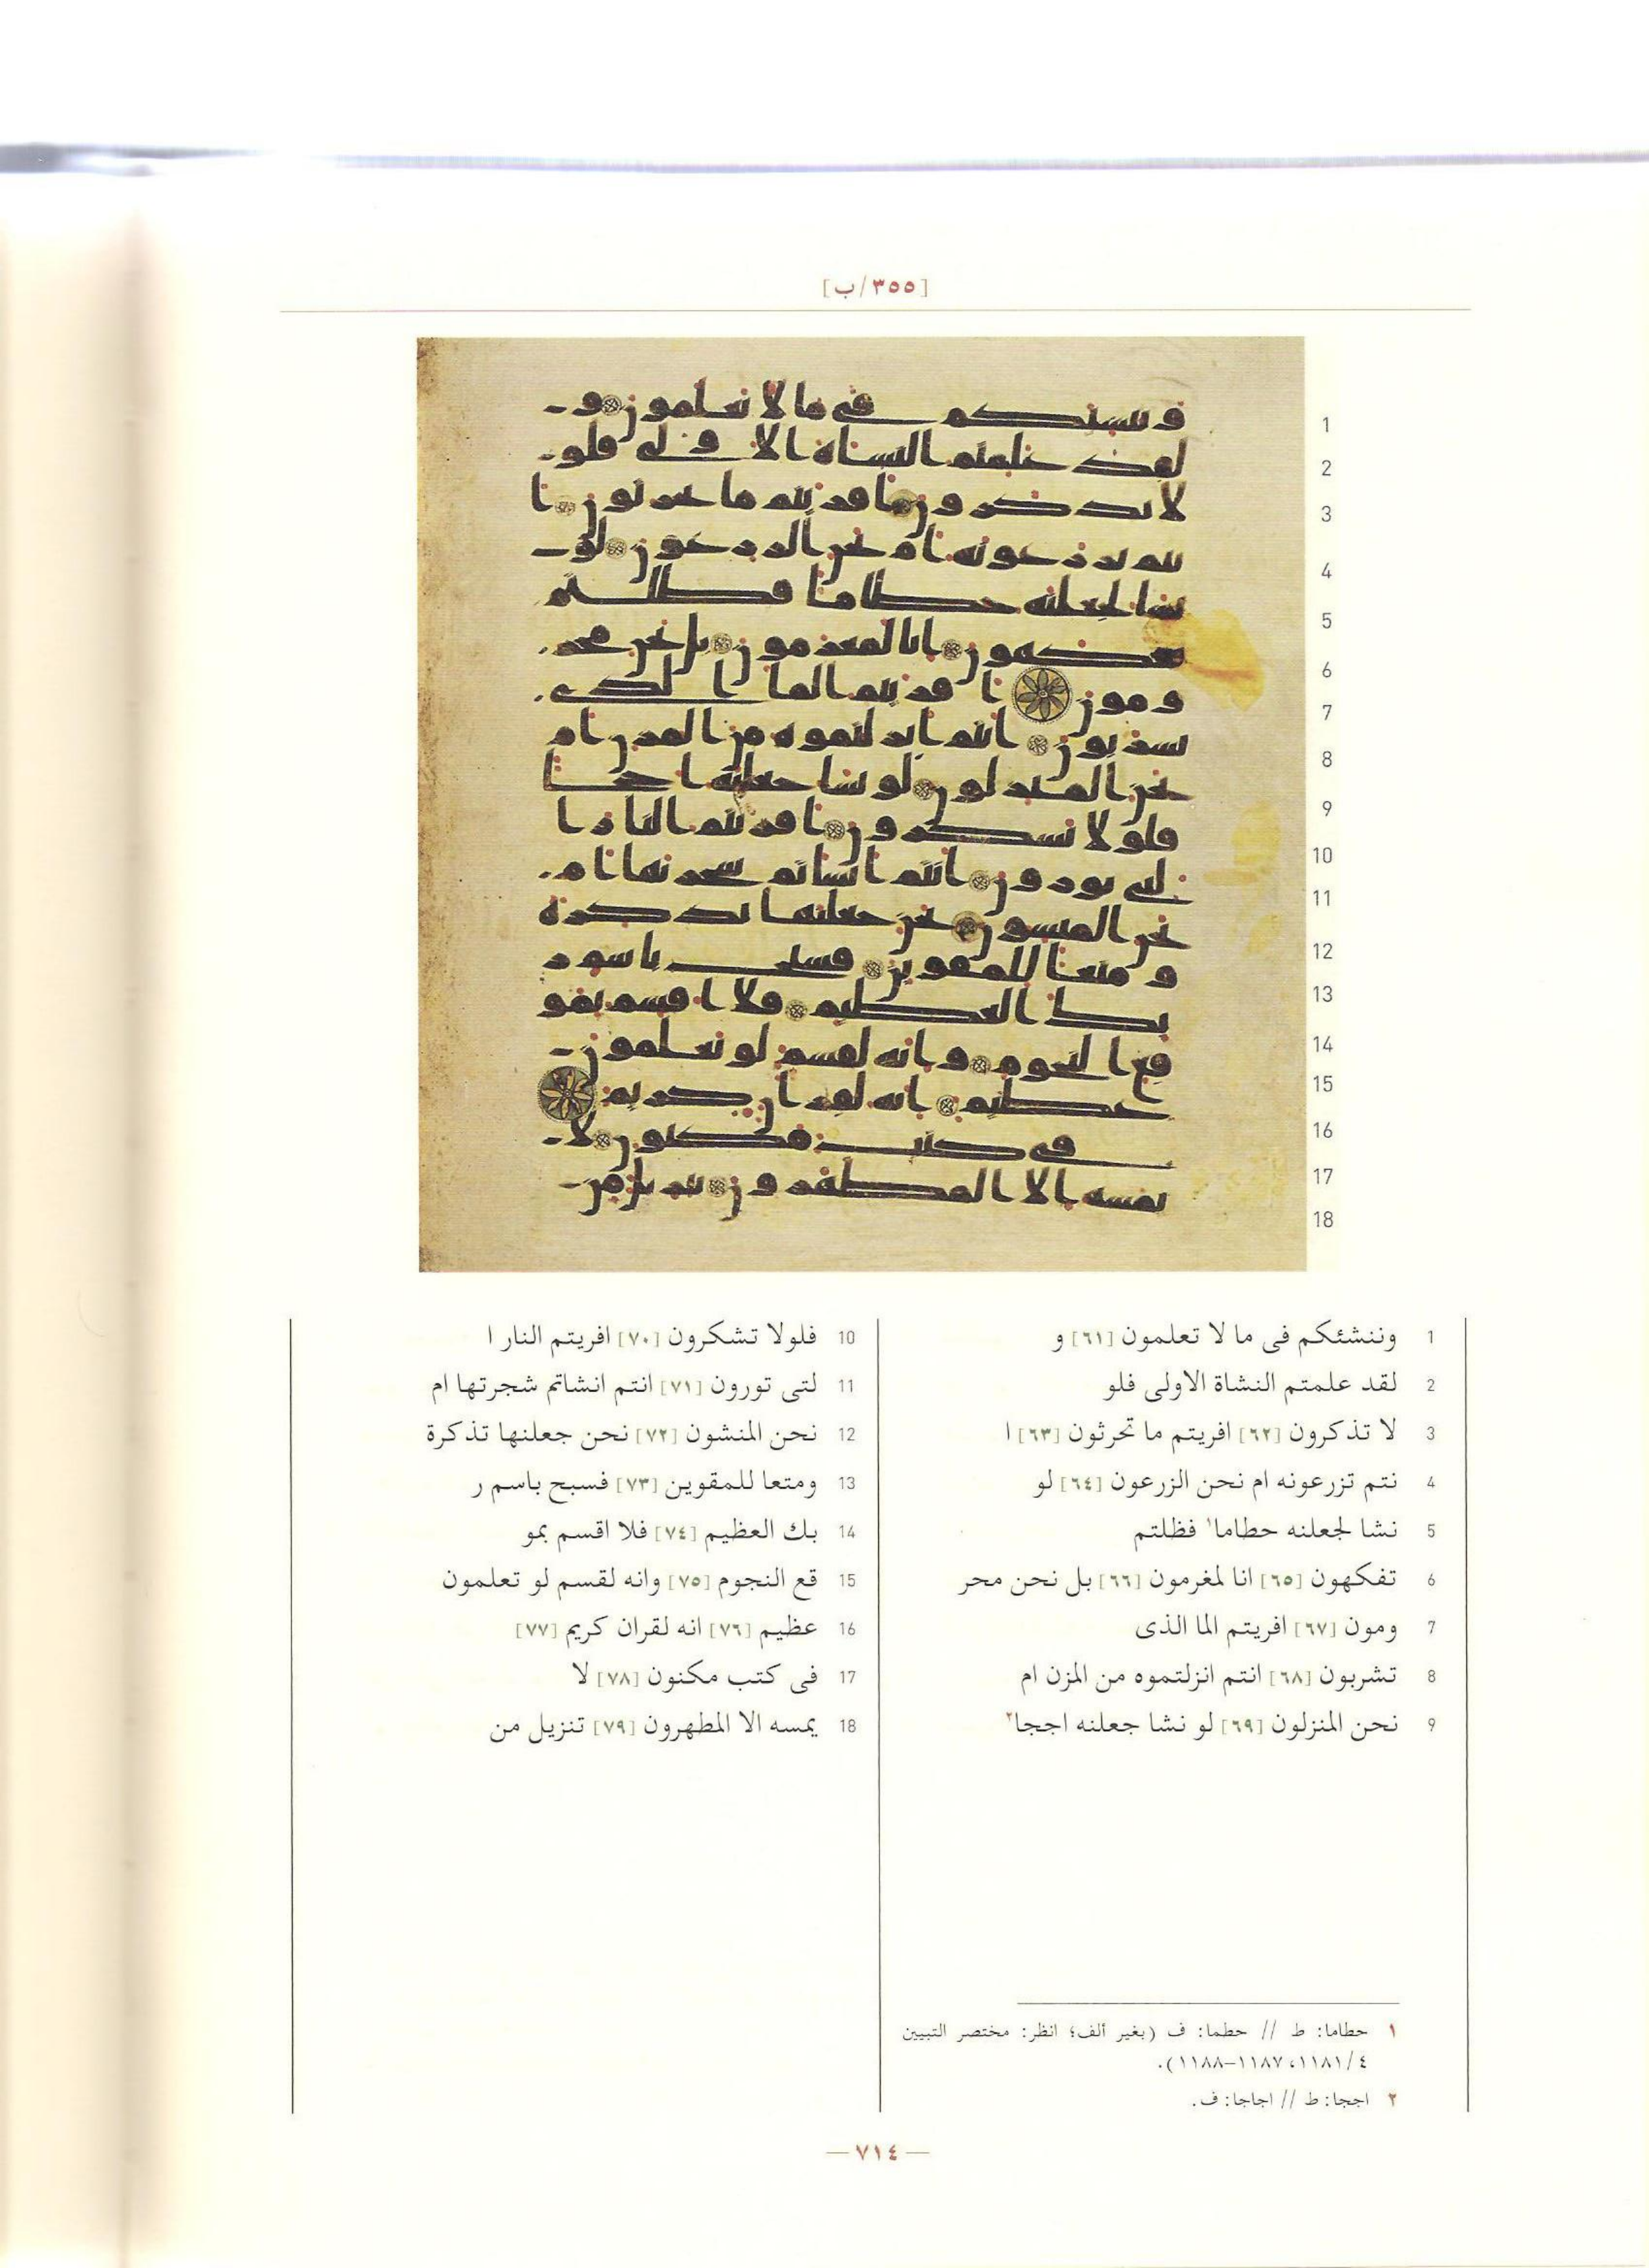 [٣٥٥/ب]
1
2
3
4
5
6
7
8
9
10
11
12
13
14
15
16
17
18
1 وننشئكم فى ما لا تعلمون [٦١] و
2 لقد علمتم النشاة الاولى فلو
3 لا تذكرون [٦٢] افريتم ما تحرثون [٦٣] ا
4 نتم تزرعونه ام نحن الزرعون [٦٤] لو
5 نشا لجعلنه حطاما١ فظلتم
6 تفكهون [٦٥] انا لمغرمون [٦٦] بل نحن محر
7 ومون [٦٧] افريتم الما الذى
8 تشربون [٦٨] انتم انزلتموه من المزن ام
9 نحن المنزلون [٦٩] لو نشا جعلنه اججا٢
10 فلولا تشكرون [٧٠] افريتم النار ا
11 لتى تورون [٧١] انتم انشاتم شجرتها ام
12 نحن المنشون [٧٢] نحن جعلنها تذكرة
13 ومتعا للمقوين [٧٣] فسبح باسم ر
14 بك العظيم [٧٤] فلا اقسم بمو
15 قع النجوم [٧٥] وانه لقسم لو تعلمون
16 عظيم [٧٦] انه لقران كريم [٧٧]
17 فى كتب مكنون [٧٨] لا
18 يمسه الا المطهرون [٧٩] تنزيل من
١ حطاما: ط // حطما: ف (بغير ألف؛ انظر: مختصر التبيين
٤/١١٨١، ١١٨٧-١١٨٨).
٢ اججا: ط // اجاجا: ف.
— ٧١٤ —